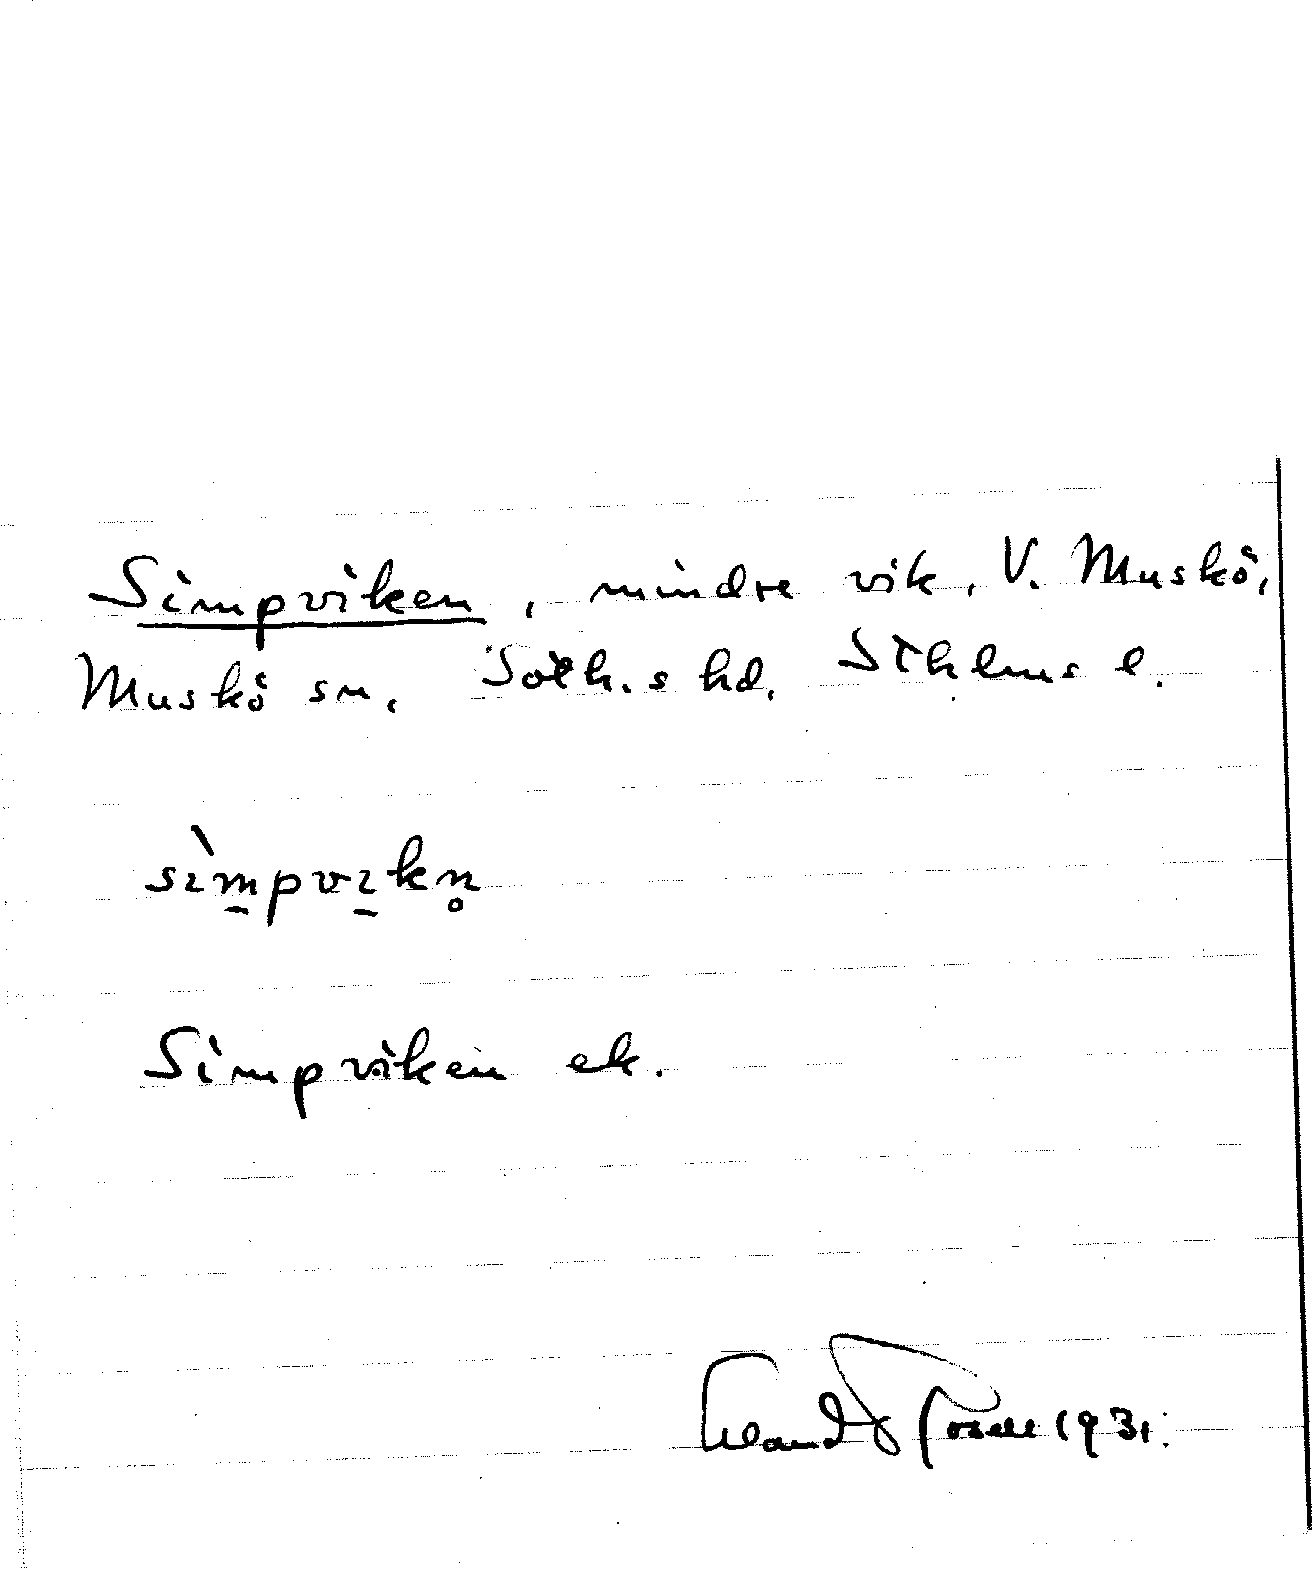 Simpviken, mindre vik, V. Muskö,
Muskö sn, Soth.s hd, Sthlms l.
sìm̠pvɪ̠kn̥
Simpviken ek.
1931.